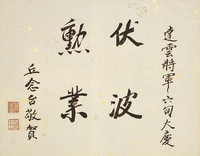 達雲將軍六旬大慶
伏波
勳業
丘念台敬賀